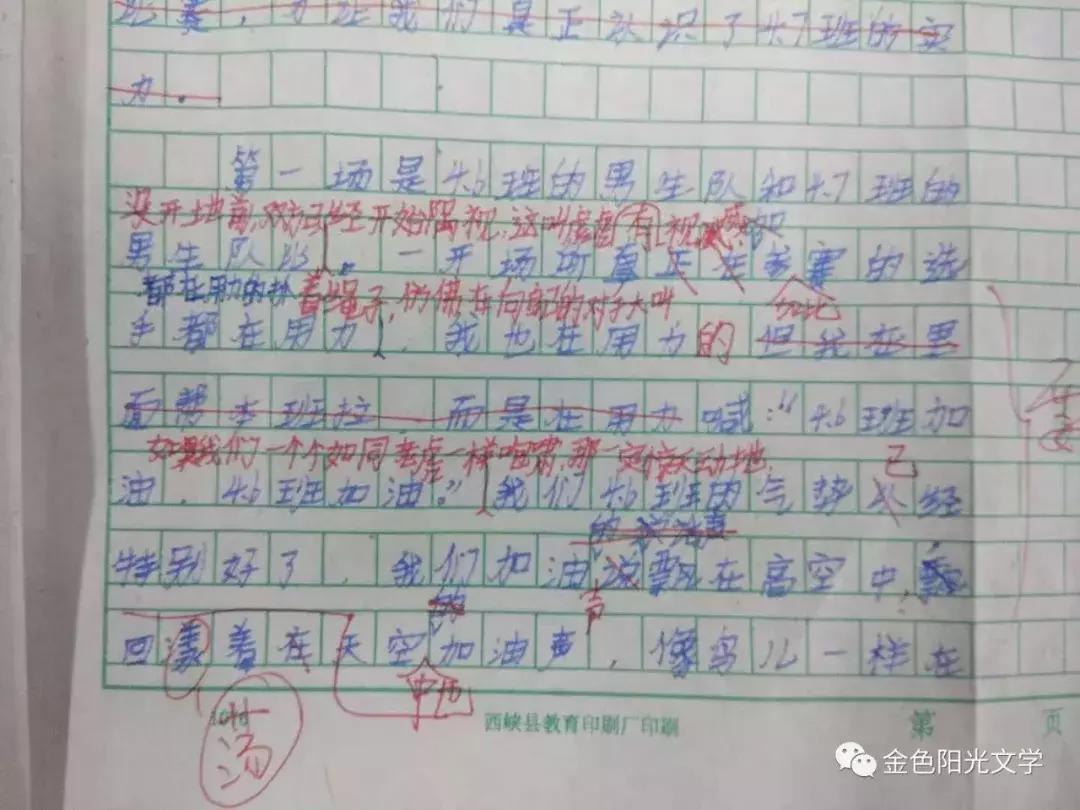 比赛，为让我们是正认识了4.7班的实
力。
第一场是4.6班的男生队和4.7班的
没开始前，双方已经开始隅视，这叫虐
男生队以。一开场所有正在参赛的选
加比
都在用力的扒着绳子，仿佛在向的对手大叫
手都在用力，我也在用力的但我在里
面帮本班拉而是在用力喊：“4.6班加
如果我们一个个如同老虎一样咆哮，那一定惊天动地。 已
油，4.6班加油。”我们4.6班的气势以经
的
特别好了，我们加油飘在高空中，
的 声
回漾着在天空加油声，像鸟儿一样在
中的
荡
西峡县教育印刷厂印刷 第 页
金色阳光文学